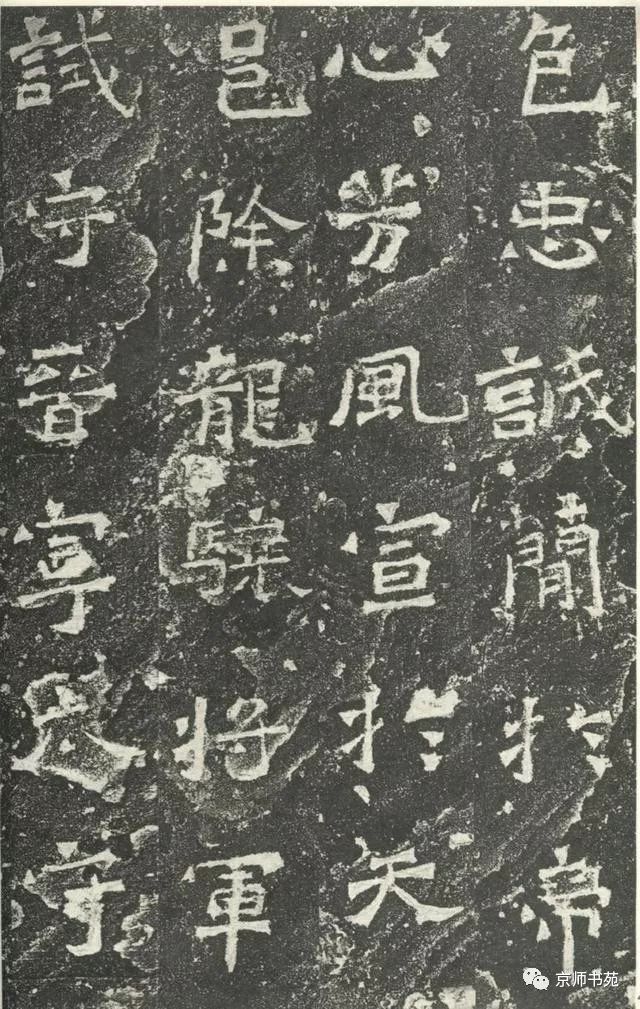 色忠誠簡於帝
心芳風宣於天
邑除龍驤将軍
試守晉寧太守
京师书苑